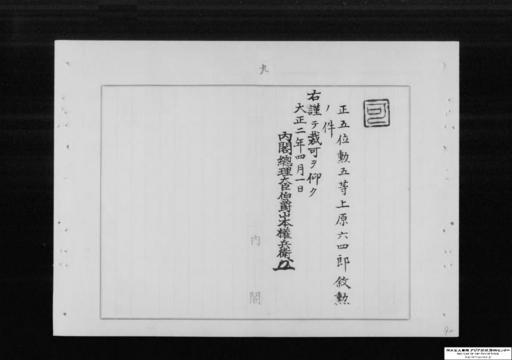 可
正五位勲五等上原六四郎敘勲
ノ件
右謹テ裁可ヲ仰ク
大正二年四月一日
内閣總理大臣伯爵山本權兵衞
内閣